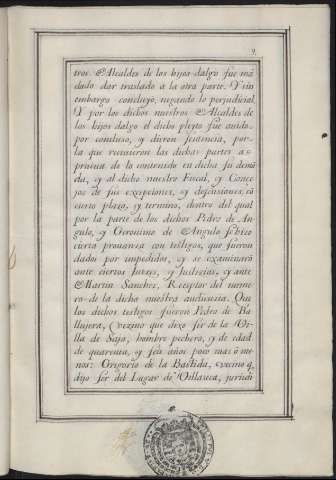 9.
tros Alcaldes de los hijos dalgo fue mã
dado dar traslado a la otra parte. Y sin
embargo concluyo, negando lo perjudicial
Y por los dichos nuestros Alcaldes de
los hijos dalgo el dicho pleyto fue auido
por concluso, y dieron sentencia, por
la que recivieron las dichas partes a
prueua de lo contenido en dicha su demã
da, y al dicho nuestro Fiscal, y Conce
jos de sus excepciones, y defensiones, cõ
cierto plazo, y termino, dentro del qual
por la parte de los dichos Pedro de An
gulo, y Geronimo de Angulo se hizo
cierta prouanza con testigos, que fueron
dados por impedidos, y se examinarõ
ante ciertos Juezes, y Justicias, y ante
Martin Sanchez, Receptor del nume
ro de la dicha nuestra audiencia. Que
los dichos testigos fueron Pedro de Ba
llujera, (vezino que dixo ser de la Vi
lla de Sajo, hombre pechero, y de edad
de quarenta, y seis años poco mas ò me
nos: Gregorio de la Bastida, vecino q̃
dijo ser del Lugar de Villauca, jurisdi